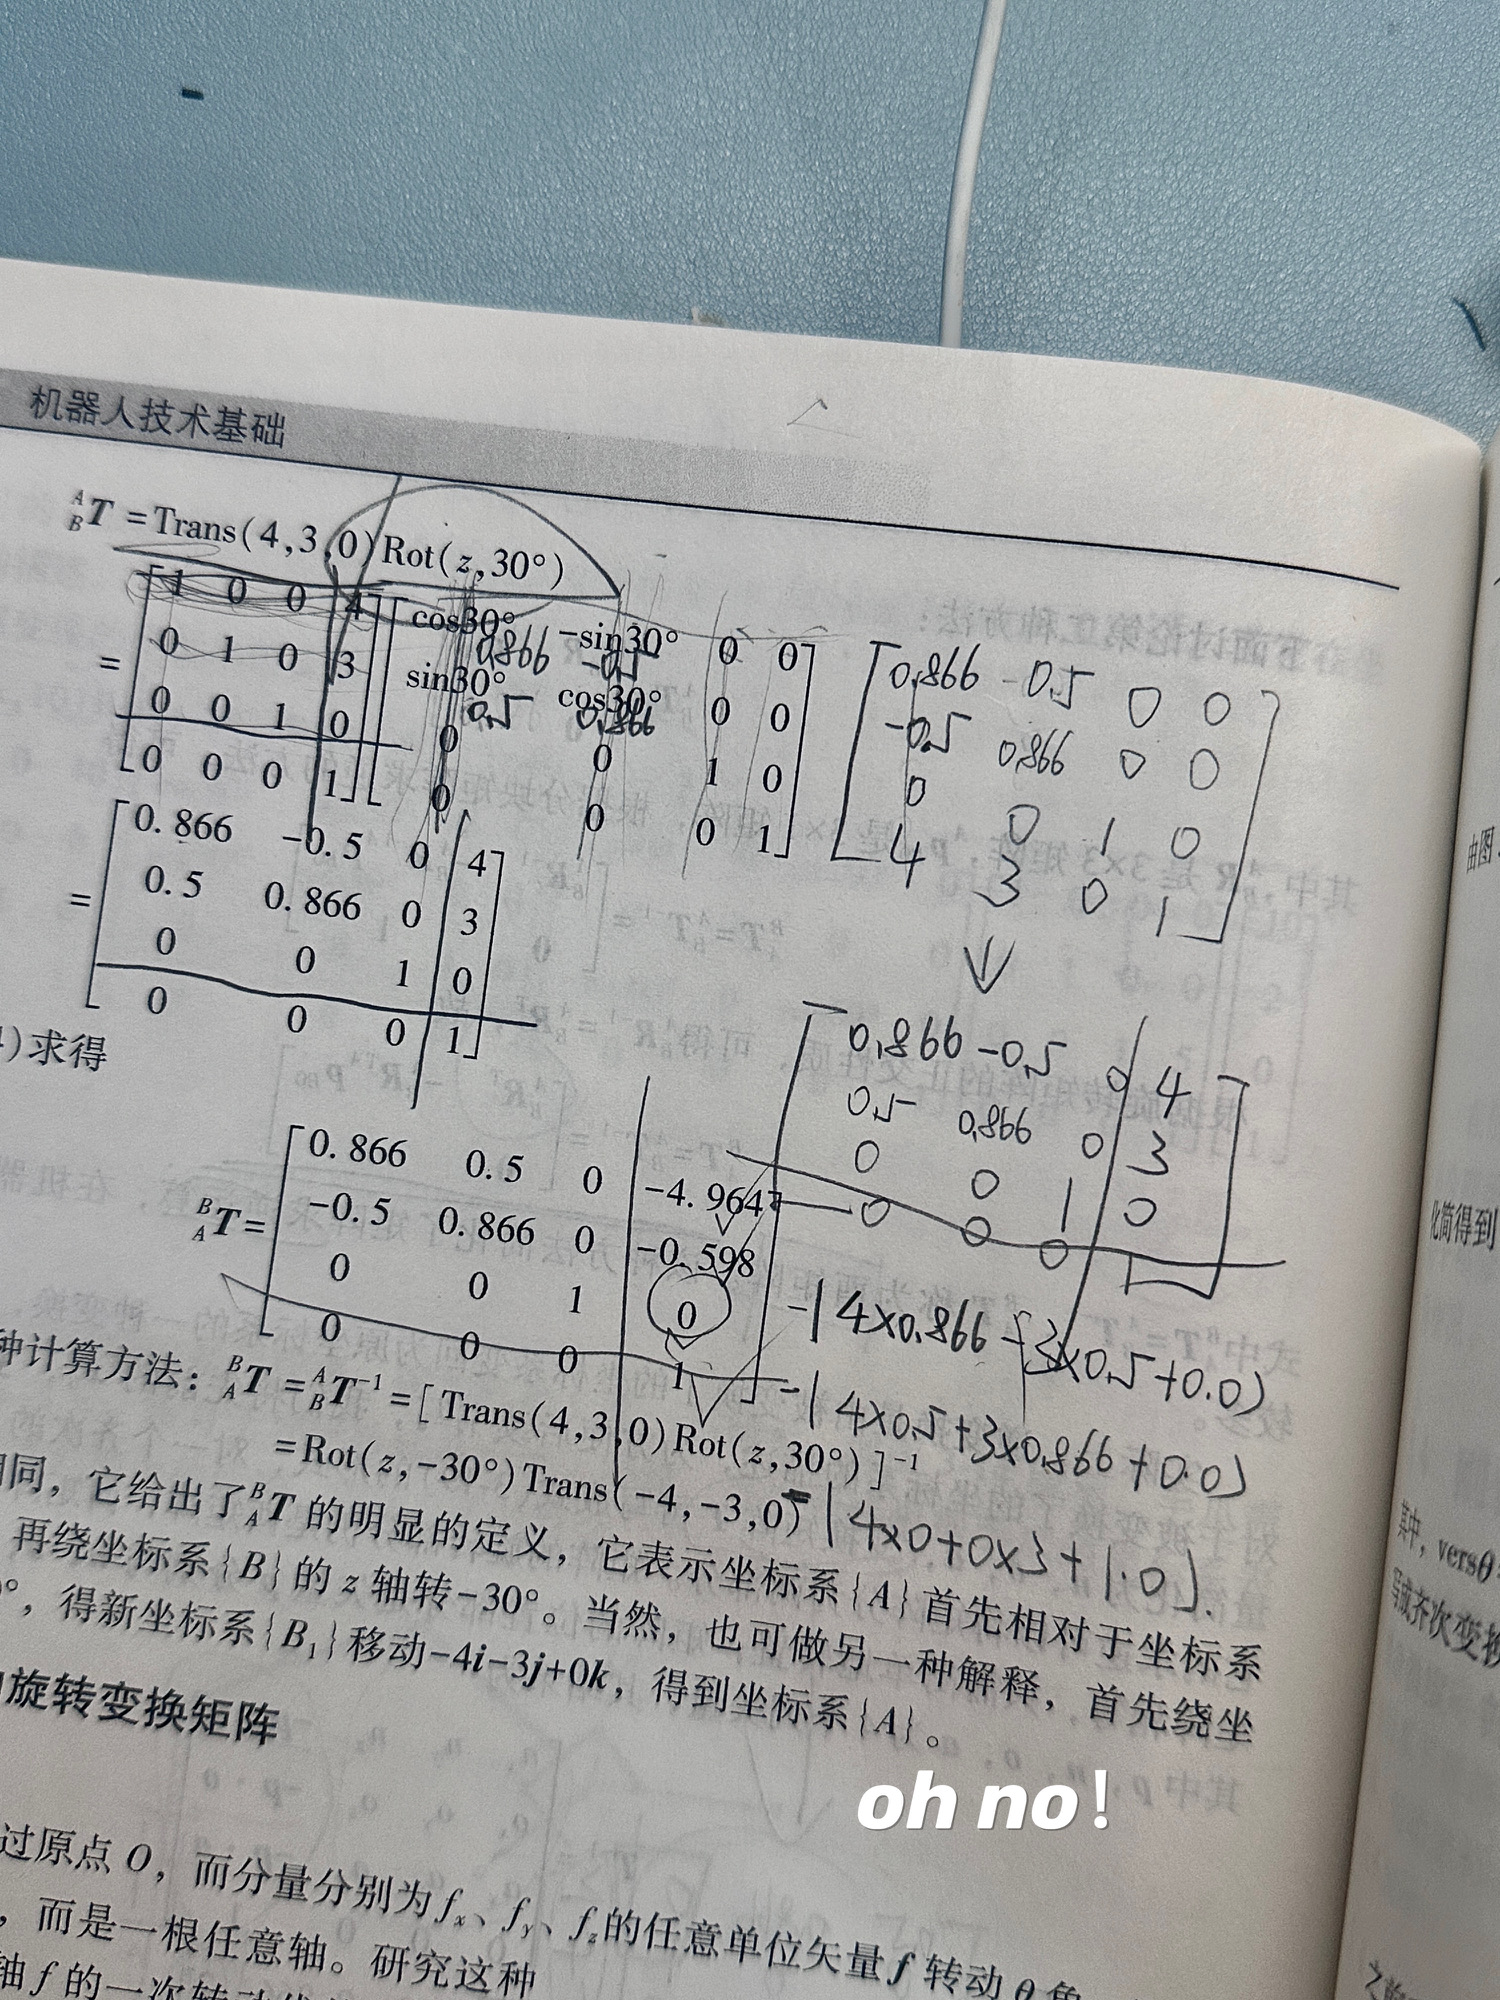 机器人技术基础
A B T =Trans(4,3,0)Rot(z,30°)
= [1 0 0 4] [cos30° -sin30° 0 0]
[0 1 0 3] [sin30° cos30° 0 0]
[0 0 1 0] [0 0 1 0]
[0 0 0 1] [0 0 0 1]
0.866 -0.5
0.5 0.866
0.866 -0.5 0 0
-0.5 0.866 0 0
0 0 1 0
4 3 0 1
= [0.866 -0.5 0 4]
[0.5 0.866 0 3]
[0 0 1 0]
[0 0 0 1]
↓
0.866 -0.5 0 4
0.5 0.866 0 3
0 0 1 0
0 0 0 1
)求得
B A T= [0.866 0.5 0 -4.964]
[-0.5 0.866 0 -0.598]
[0 0 1 0]
[0 0 0 1]
-(4×0.866 - 3×0.5+0.0)
-(4×0.5+3×0.866+0.0)
-(4×0+0×3+1.0).
种计算方法：B A T =A B T⁻¹=[Trans(4,3,0)Rot(z,30°)]⁻¹
=Rot(z,-30°)Trans(-4,-3,0)
同，它给出了B A T 的明显的定义，它表示坐标系{A}首先相对于坐标系
再绕坐标系{B}的 z 轴转-30°。当然，也可做另一种解释，首先绕坐
°，得新坐标系{B₁}移动-4i-3j+0k，得到坐标系{A}。
旋转变换矩阵
oh no！
过原点 O，而分量分别为 fx、fy、fz的任意单位矢量 f 转动 θ 角
，而是一根任意轴。研究这种
轴 f 的一次转动
由图
化简得到
其中，versθ
写成齐次变换